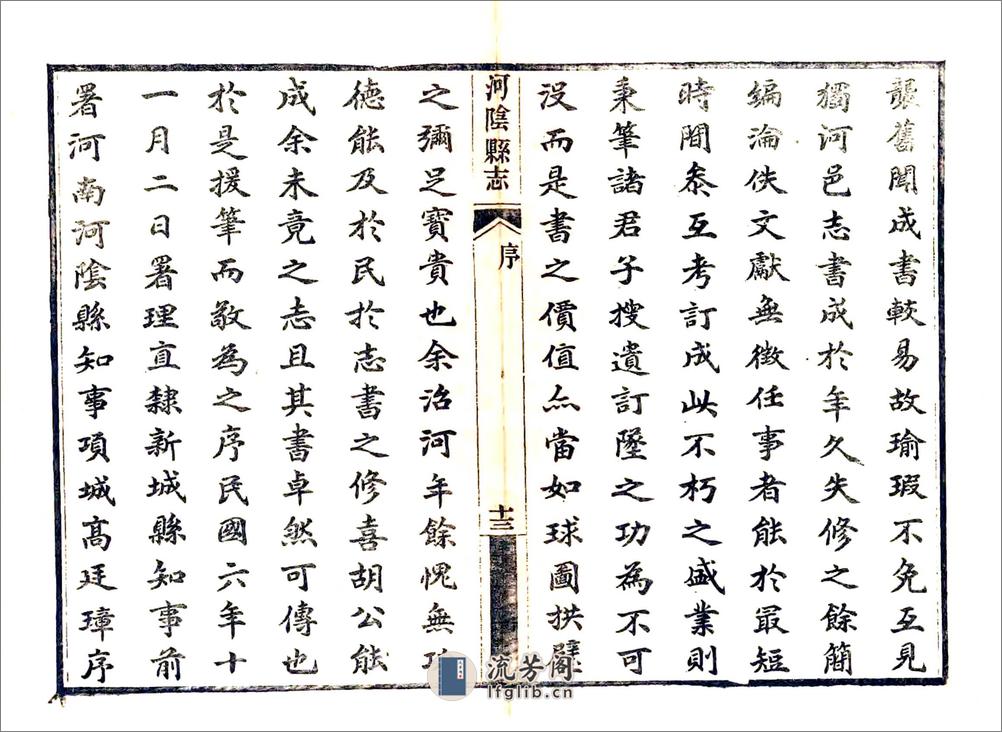 襲舊聞成書較易故瑜瑕不免互見
獨河邑志書成於年久失修之餘簡
編淪佚文獻無徵任事者能於最短
時間參互考訂成此不朽之盛業則
秉筆諸君子搜遺訂墜之功為不可
沒而是書之價值亦當如球圖拱璧
河陰縣志
序
十三
之彌足寶貴也余治河年餘愧無功
德能及於民於志書之修喜胡公能
成余未竟之志且其書卓然可傳也
於是援筆而敬為之序民國六年十
一月二日署理直隸新城縣知事前
署河南河陰縣知事項城高廷璋序
流芳閣
lfglib.cn